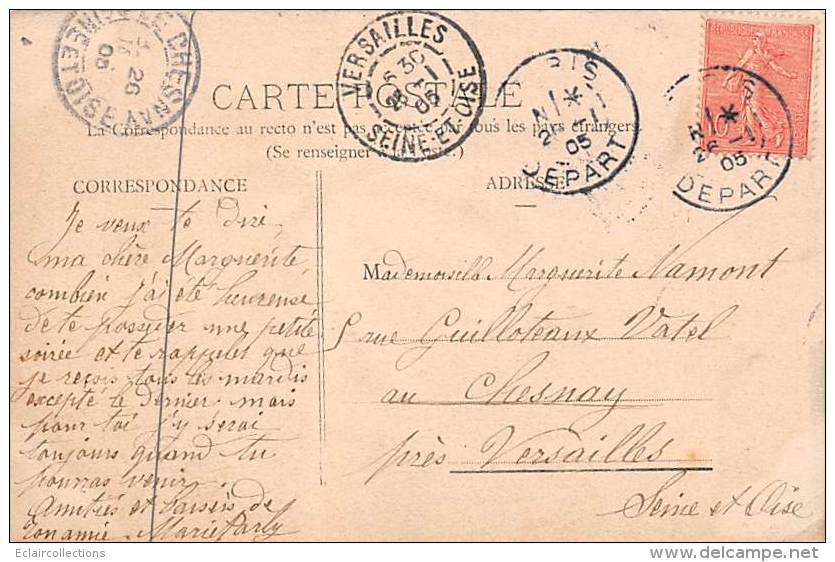 CARTE POSTALE
La Correspondance au recto n'est pas acceptée par tous les pays étrangers.
(Se renseigner à la Poste.)
CORRESPONDANCE
ADRESSE
Je veux te dire,
ma chère Marguerite,
combien j'ai été heureuse
de te posséder une petite
soirée et te rappeler que
je reçois tous les mardis
excepté le dernier mais
pour toi j'y serai
toujours quand tu
pourras venir.
Amitiés et baisers de
ton amie Marie
Mademoiselle Marguerite Namont
5 rue Guilloteaux Vatel
au Chesnay
près Versailles
Seine et Oise
LE CHESNAY
SEINE ET OISE
26
05
VERSAILLES
6 30
26 -11
05
SEINE-ET-OISE
PARIS
05
DEPART
26 -11
05
DEPART
10
Eclaircollections
delcampe.net